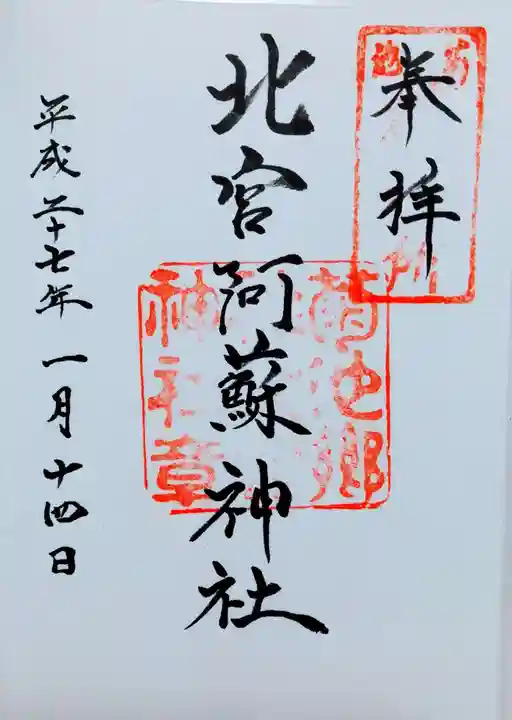 奉拝
北宮阿蘇神社
菊池郷
神社章
平成二十七年一月十四日